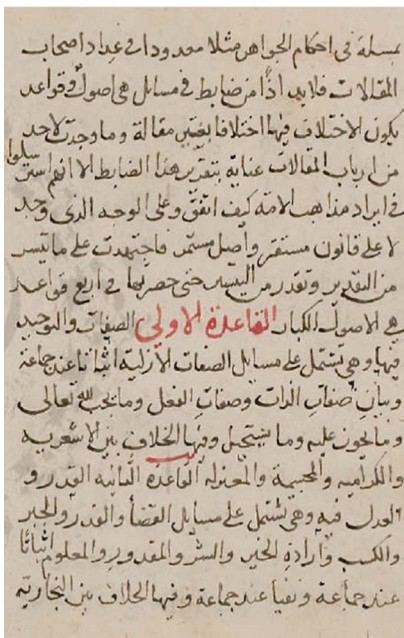 بمسئلة في احكام الجواهر مثلا معدودا في عداد اصحاب
المقالات فلا بد اذًا من ضابط في مسايل هي اصول وقواعد
يكون الاختلاف فيها اختلافا يعتبر مقالة وما وجدت لاحد
من ارباب المقالات عناية بتقرير هذا الضابط الا انهم استرسلوا
في ايراد مذاهب الامة كيف اتفق وعلى الوجه الذي وجد
لا على قانون مستقر واصل مستمر فاجتهدت على ما تيسر
من التقدير وتقدر من التيسير حتى حصرتها في اربع قواعد
هي الاصول الكبار القاعدة الاولى الصفات والتوحيد
فيها وهي تشتمل على مسايل الصفات الازلية اثباتا عند جماعة
وبيان صفات الذات وصفات الفعل وما يجب لله تعالى
وما يجوز عليه وما يستحيل وفيها الخلاف بين الاشعريه
والكراميه والمجسمة والمعتزله القاعدة الثانيه القدر و
العدل فيه وهي تشتمل على مسايل القضأ والقدر والجبر
والكسب وارادة الخير والشر والمقدور والمعلوم اثباتا
عند جماعة ونفيا عند جماعة وفيها الخلاف بين النجاريه